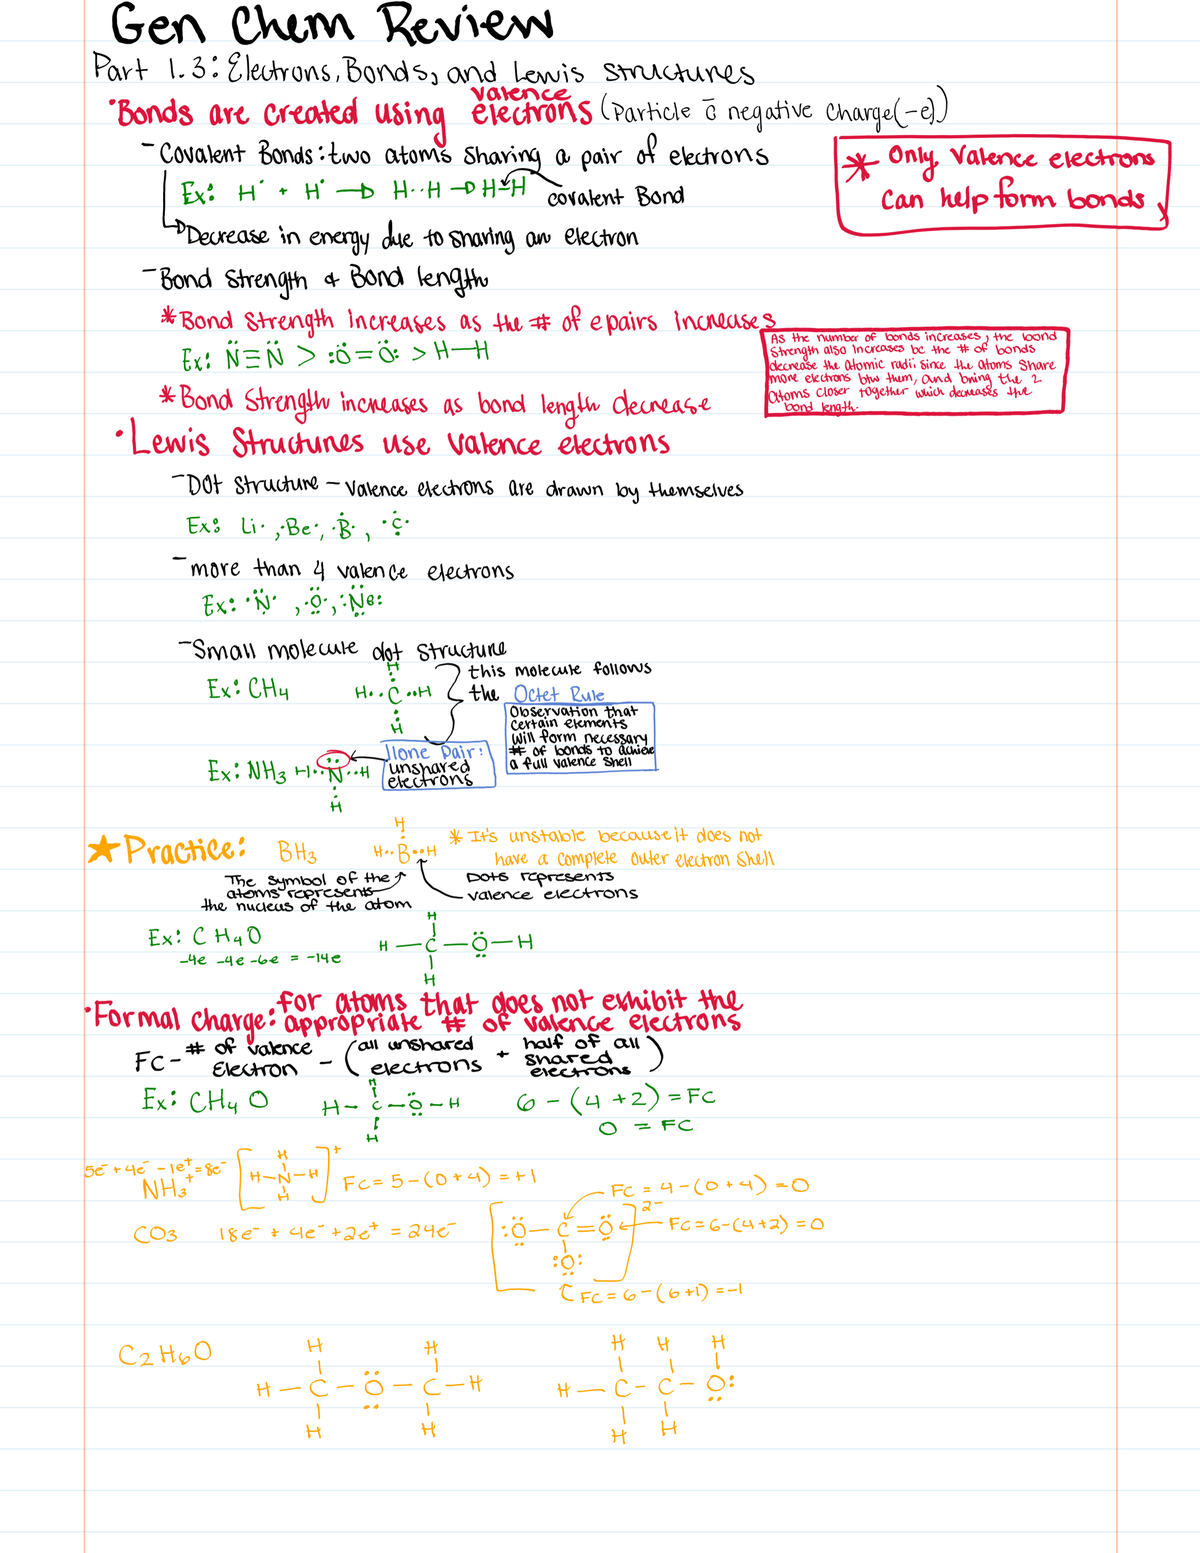 Gen Chem Review
Part 1.3: Electrons, Bonds, and Lewis Structures
valence
•Bonds are created using electrons (Particle c̄ negative charge(-e))
* Only Valence electrons
can help form bonds
- Covalent Bonds: two atoms sharing a pair of electrons
Ex: H· + H· → H··H → H-H
covalent Bond
↳Decrease in energy due to sharing an electron
- Bond Strength & Bond length
* Bond Strength increases as the # of e pairs increases
Ex: N̈≡N̈ > :Ö=Ö: > H—H
As the number of bonds increases, the bond
strength also increases bc the # of bonds
decrease the atomic radii since the atoms share
more electrons btw them, and bring the 2
atoms closer together which decreases the
bond length.
* Bond Strength increases as bond length decrease
• Lewis Structures use valence electrons
- Dot Structure - valence electrons are drawn by themselves
Ex: Li·, ·Be·, ·Ḃ·, ·Ċ·
- more than 4 valence electrons
Ex: ·N̈·, ·Ö·, :Ne:
- Small molecule dot structure
H
this molecule follows
Ex: CH4 H··C··H the Octet Rule
H
Observation that
certain elements
will form necessary
# of bonds to achieve
a full valence shell
Ex: NH3 H··N··H
H
lone Pair:
unshared
electrons
H
★Practice: BH3 H··B··H
* It's unstable because it does not
have a complete outer electron shell
The symbol of the
atoms represents
the nucleus of the atom
Dots represents
valence electrons
H
Ex: CH4O H—C—Ö—H
-4e -4e -6e = -14e
H
•Formal charge: for atoms that does not exhibit the
appropriate # of valence electrons
FC- # of valence Electron - (all unshared electrons + half of all shared electrons)
H
Ex: CH4O H-C-Ö-H 6-(4+2)=FC
H
0 = FC
5e⁻+4e⁻-1e⁺=8e⁻
H
NH3⁺ [H-N-H]⁺ FC=5-(0+4)=+1
H
FC = 4-(0+4)=0
CO3 18e⁻ + 4e⁻ +2e⁺ = 24e⁻ [:Ö—C=Ö]2- FC=6-(4+2)=0
:O:
FC=6-(6+1)=-1
C2H6O
H H H H H
H—C—Ö—C—H H—C-C-Ö:
H H H H